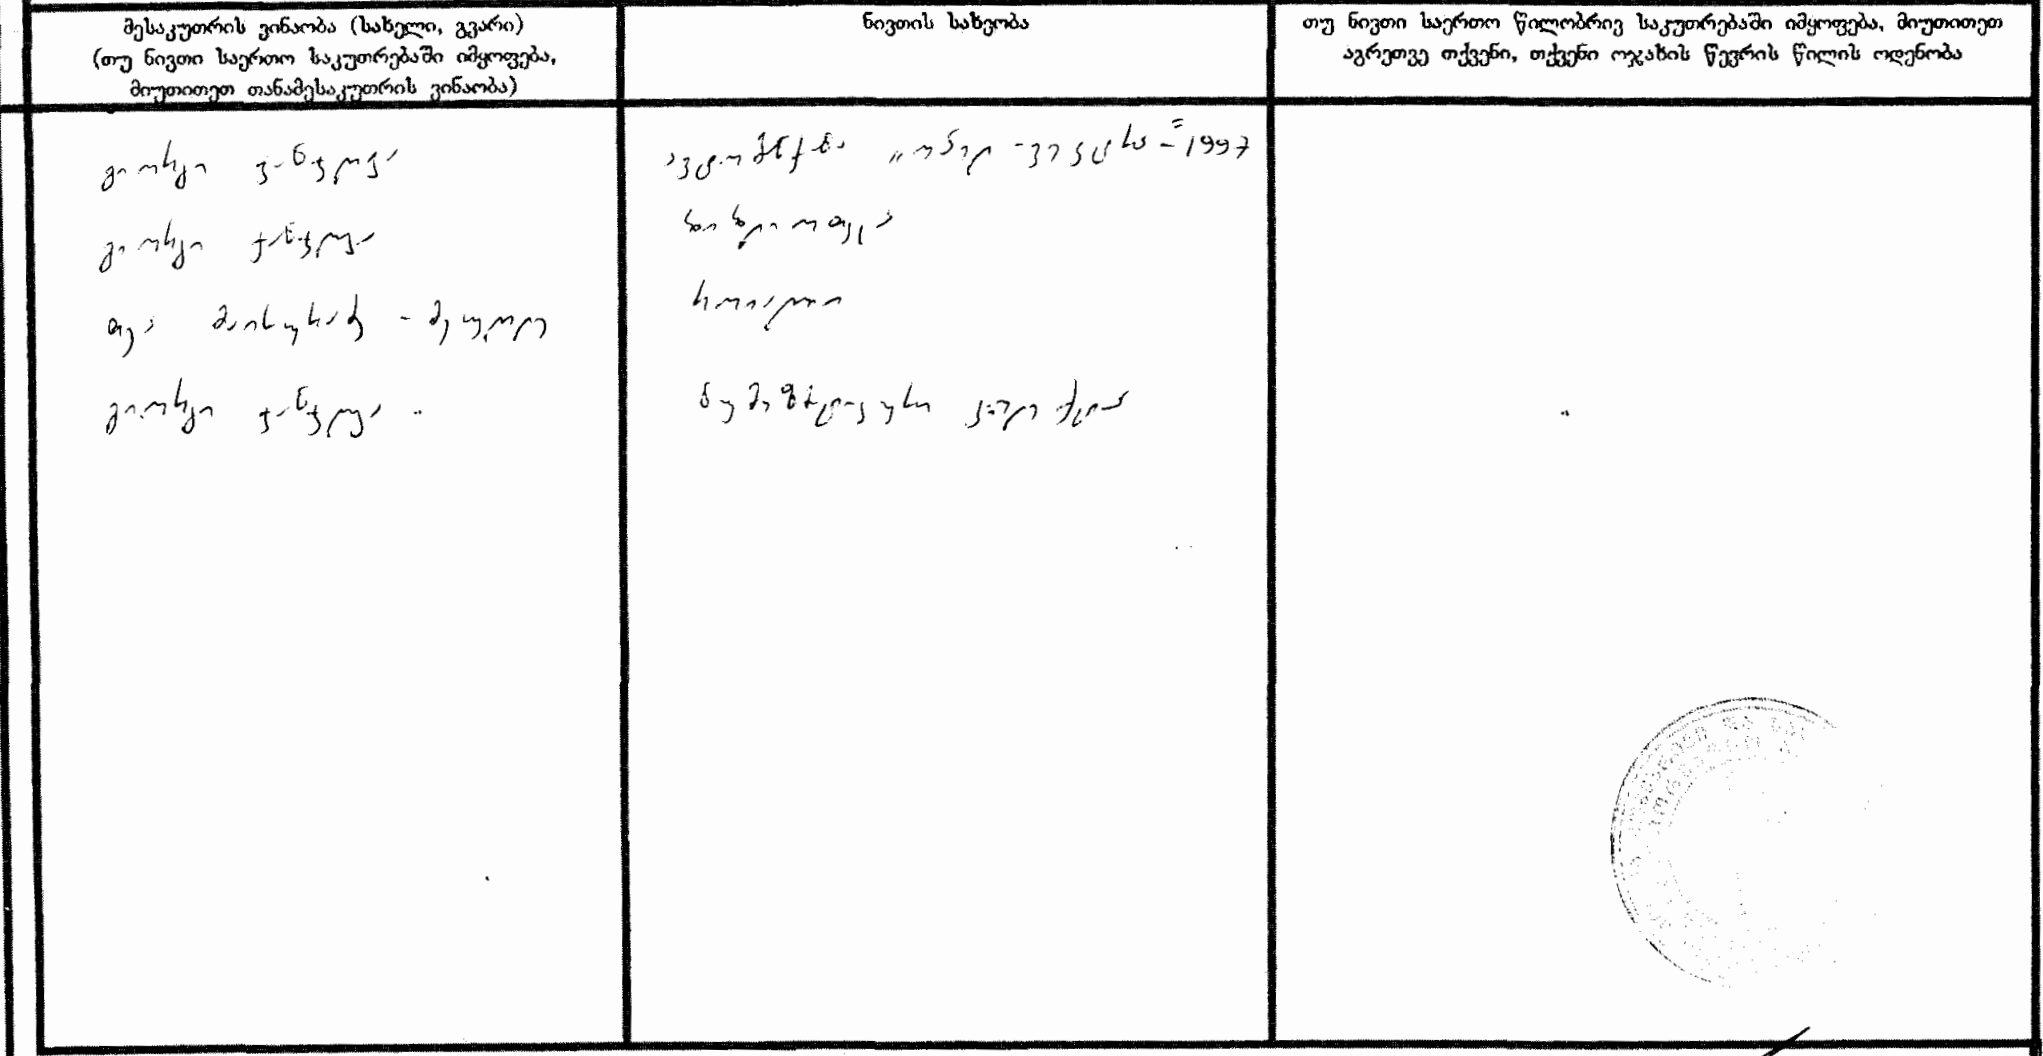 მესაკუთრის ვინაობა (სახელი, გვარი)
(თუ ნივთი საერთო საკუთრებაში იმყოფება,
მიუთითეთ თანამესაკუთრის ვინაობა)
ნივთის სახეობა
თუ ნივთი საერთო წილობრივ საკუთრებაში იმყოფება, მიუთითეთ
აგრეთვე თქვენი, თქვენი ოჯახის წევრის წილის ოდენობა
გიორგი
ავტომანქანა „ოპელ-ვექტრა" - 1997
გიორგი
ბიბლიოთეკა
თეა მაისურაძე - მეუღლე
როიალი
გიორგი
ნუმიზმატიკური კოლექცია